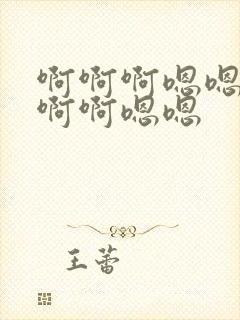 啊啊啊嗯嗯
啊啊嗯嗯
王蕾